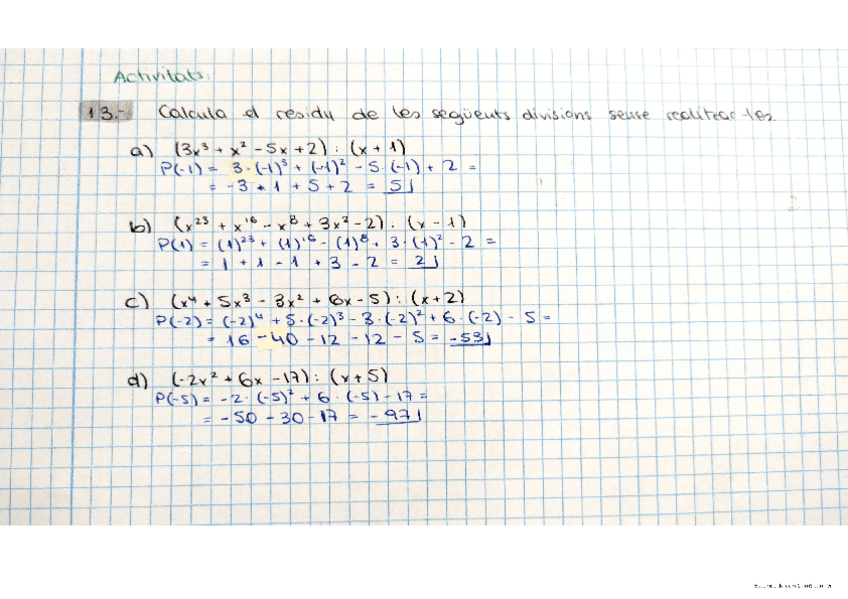 Activitats.
13.- Calcula el residu de les següents divisions sense realitzar-les
a) (3x³ + x² - 5x + 2) : (x + 1)
P(-1) = 3·(-1)³ + (-1)² - 5·(-1) + 2 =
= -3 + 1 + 5 + 2 = 5
b) (x²³ + x¹⁶ - x⁸ + 3x² - 2) : (x - 1)
P(1) = (1)²³ + (1)¹⁶ - (1)⁸ + 3·(1)² - 2 =
= 1 + 1 - 1 + 3 - 2 = 2
c) (x⁴ + 5x³ - 3x² + 6x - 5) : (x + 2)
P(-2) = (-2)⁴ + 5·(-2)³ - 3·(-2)² + 6·(-2) - 5 =
= 16 - 40 - 12 - 12 - 5 = -53
d) (-2x² + 6x - 17) : (x + 5)
P(-5) = -2·(-5)² + 6·(-5) - 17 =
= -50 - 30 - 17 = -97